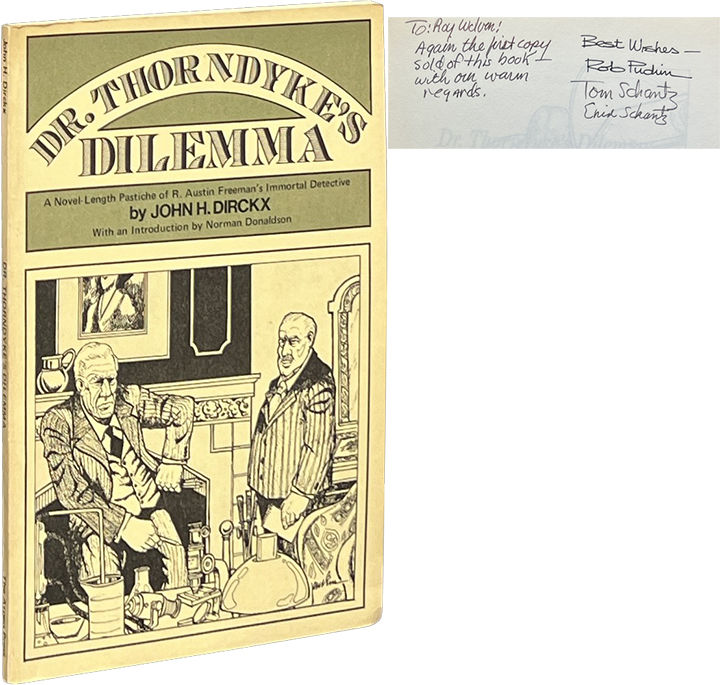 John H. Dirckx
DR. THORNDYKE'S DILEMMA
The Aspen Press
DR. THORNDYKE'S
DILEMMA
A Novel-Length Pastiche of R. Austin Freeman's Immortal Detective
by JOHN H. DIRCKX
With an Introduction by Norman Donaldson
To: Roy
Again the first copy
sold of this book —
with our warm
regards.
Best Wishes —
Rob Pudim
Tom Schantz
Enid Schantz
Dr. Thorndyke's Dilemma